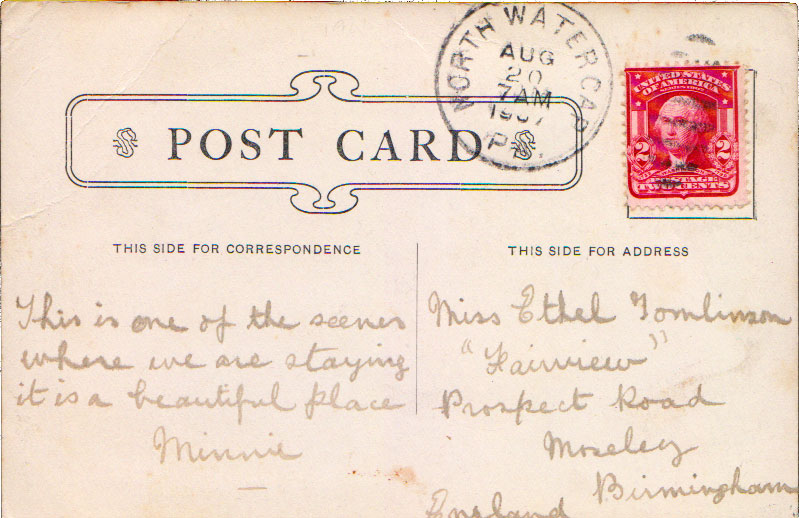 NORTH WATER GAP
AUG
20
7AM
1907
PA.
UNITED STATES
OF AMERICA
2 2
POSTAGE
TWO CENTS
POST CARD
THIS SIDE FOR CORRESPONDENCE
THIS SIDE FOR ADDRESS
This is one of the scenes
where we are staying
it is a beautiful place
Minnie
Miss Ethel Tomlinson
"Fairview"
Prospect Road
Moseley
Birmingham
England